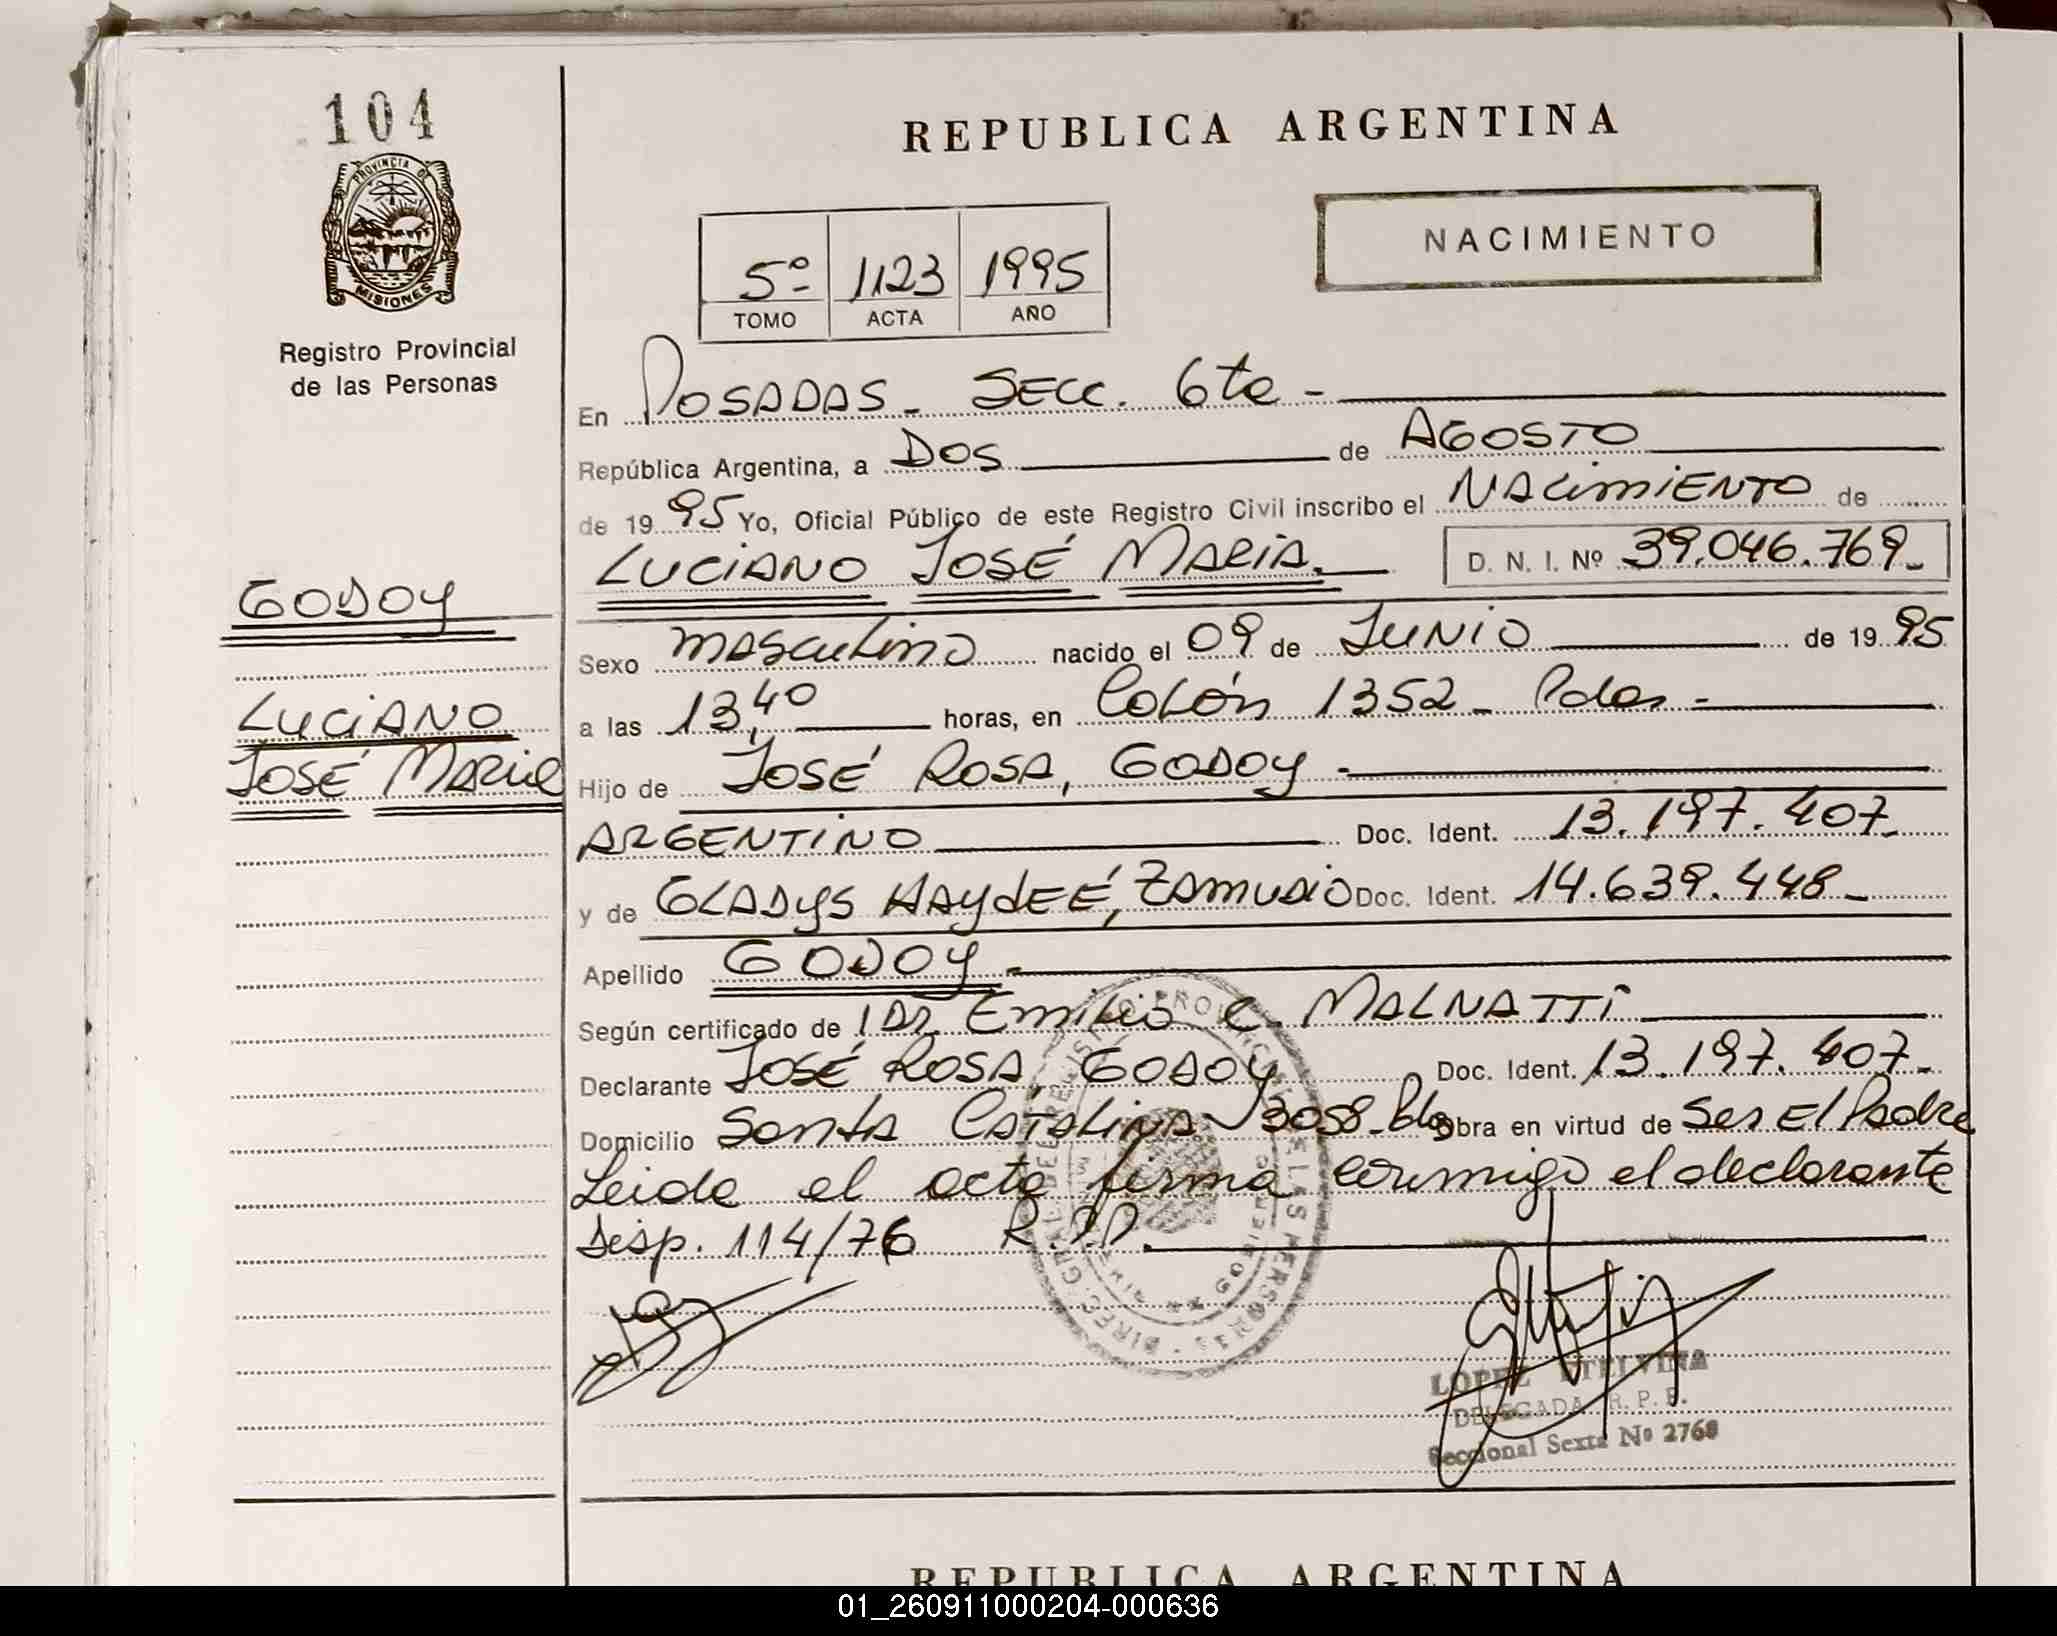 104
PROVINCIA DE
MISIONES
Registro Provincial
de las Personas
GODOY
LUCIANO
JOSÉ MARIA
REPUBLICA ARGENTINA
NACIMIENTO
5º 1123 1995
TOMO ACTA AÑO
En POSADAS - SECC. 6ta -
República Argentina, a DOS de AGOSTO
de 1995 Yo, Oficial Público de este Registro Civil inscribo el NACIMIENTO de
LUCIANO JOSÉ MARIA. D. N. I. Nº 39.046.769-
Sexo MASCULINO nacido el 09 de JUNIO de 1995
a las 13,40 horas, en Colón 1352 - Pdas -
Hijo de JOSÉ ROSA, GODOY -
ARGENTINO Doc. Ident. 13.197.407-
y de GLADYS HAYDEÉ, ZAMUDIO Doc. Ident. 14.639.448-
Apellido GODOY -
Según certificado de 1 DR. Emilio C. MALNATTI
Declarante JOSÉ ROSA, GODOY Doc. Ident. 13.197.407-
Domicilio Santa CATALINA 3058-Pdas Obra en virtud de Ser El Padre
Leida el acta firma conmigo el declarante
Disp. 114/76 R.P.P.
LOPEZ ETELVINA
DELEGADA R. P. P.
Seccional Sexta Nº 2768
REPUBLICA ARGENTINA
01_260911000204-000636